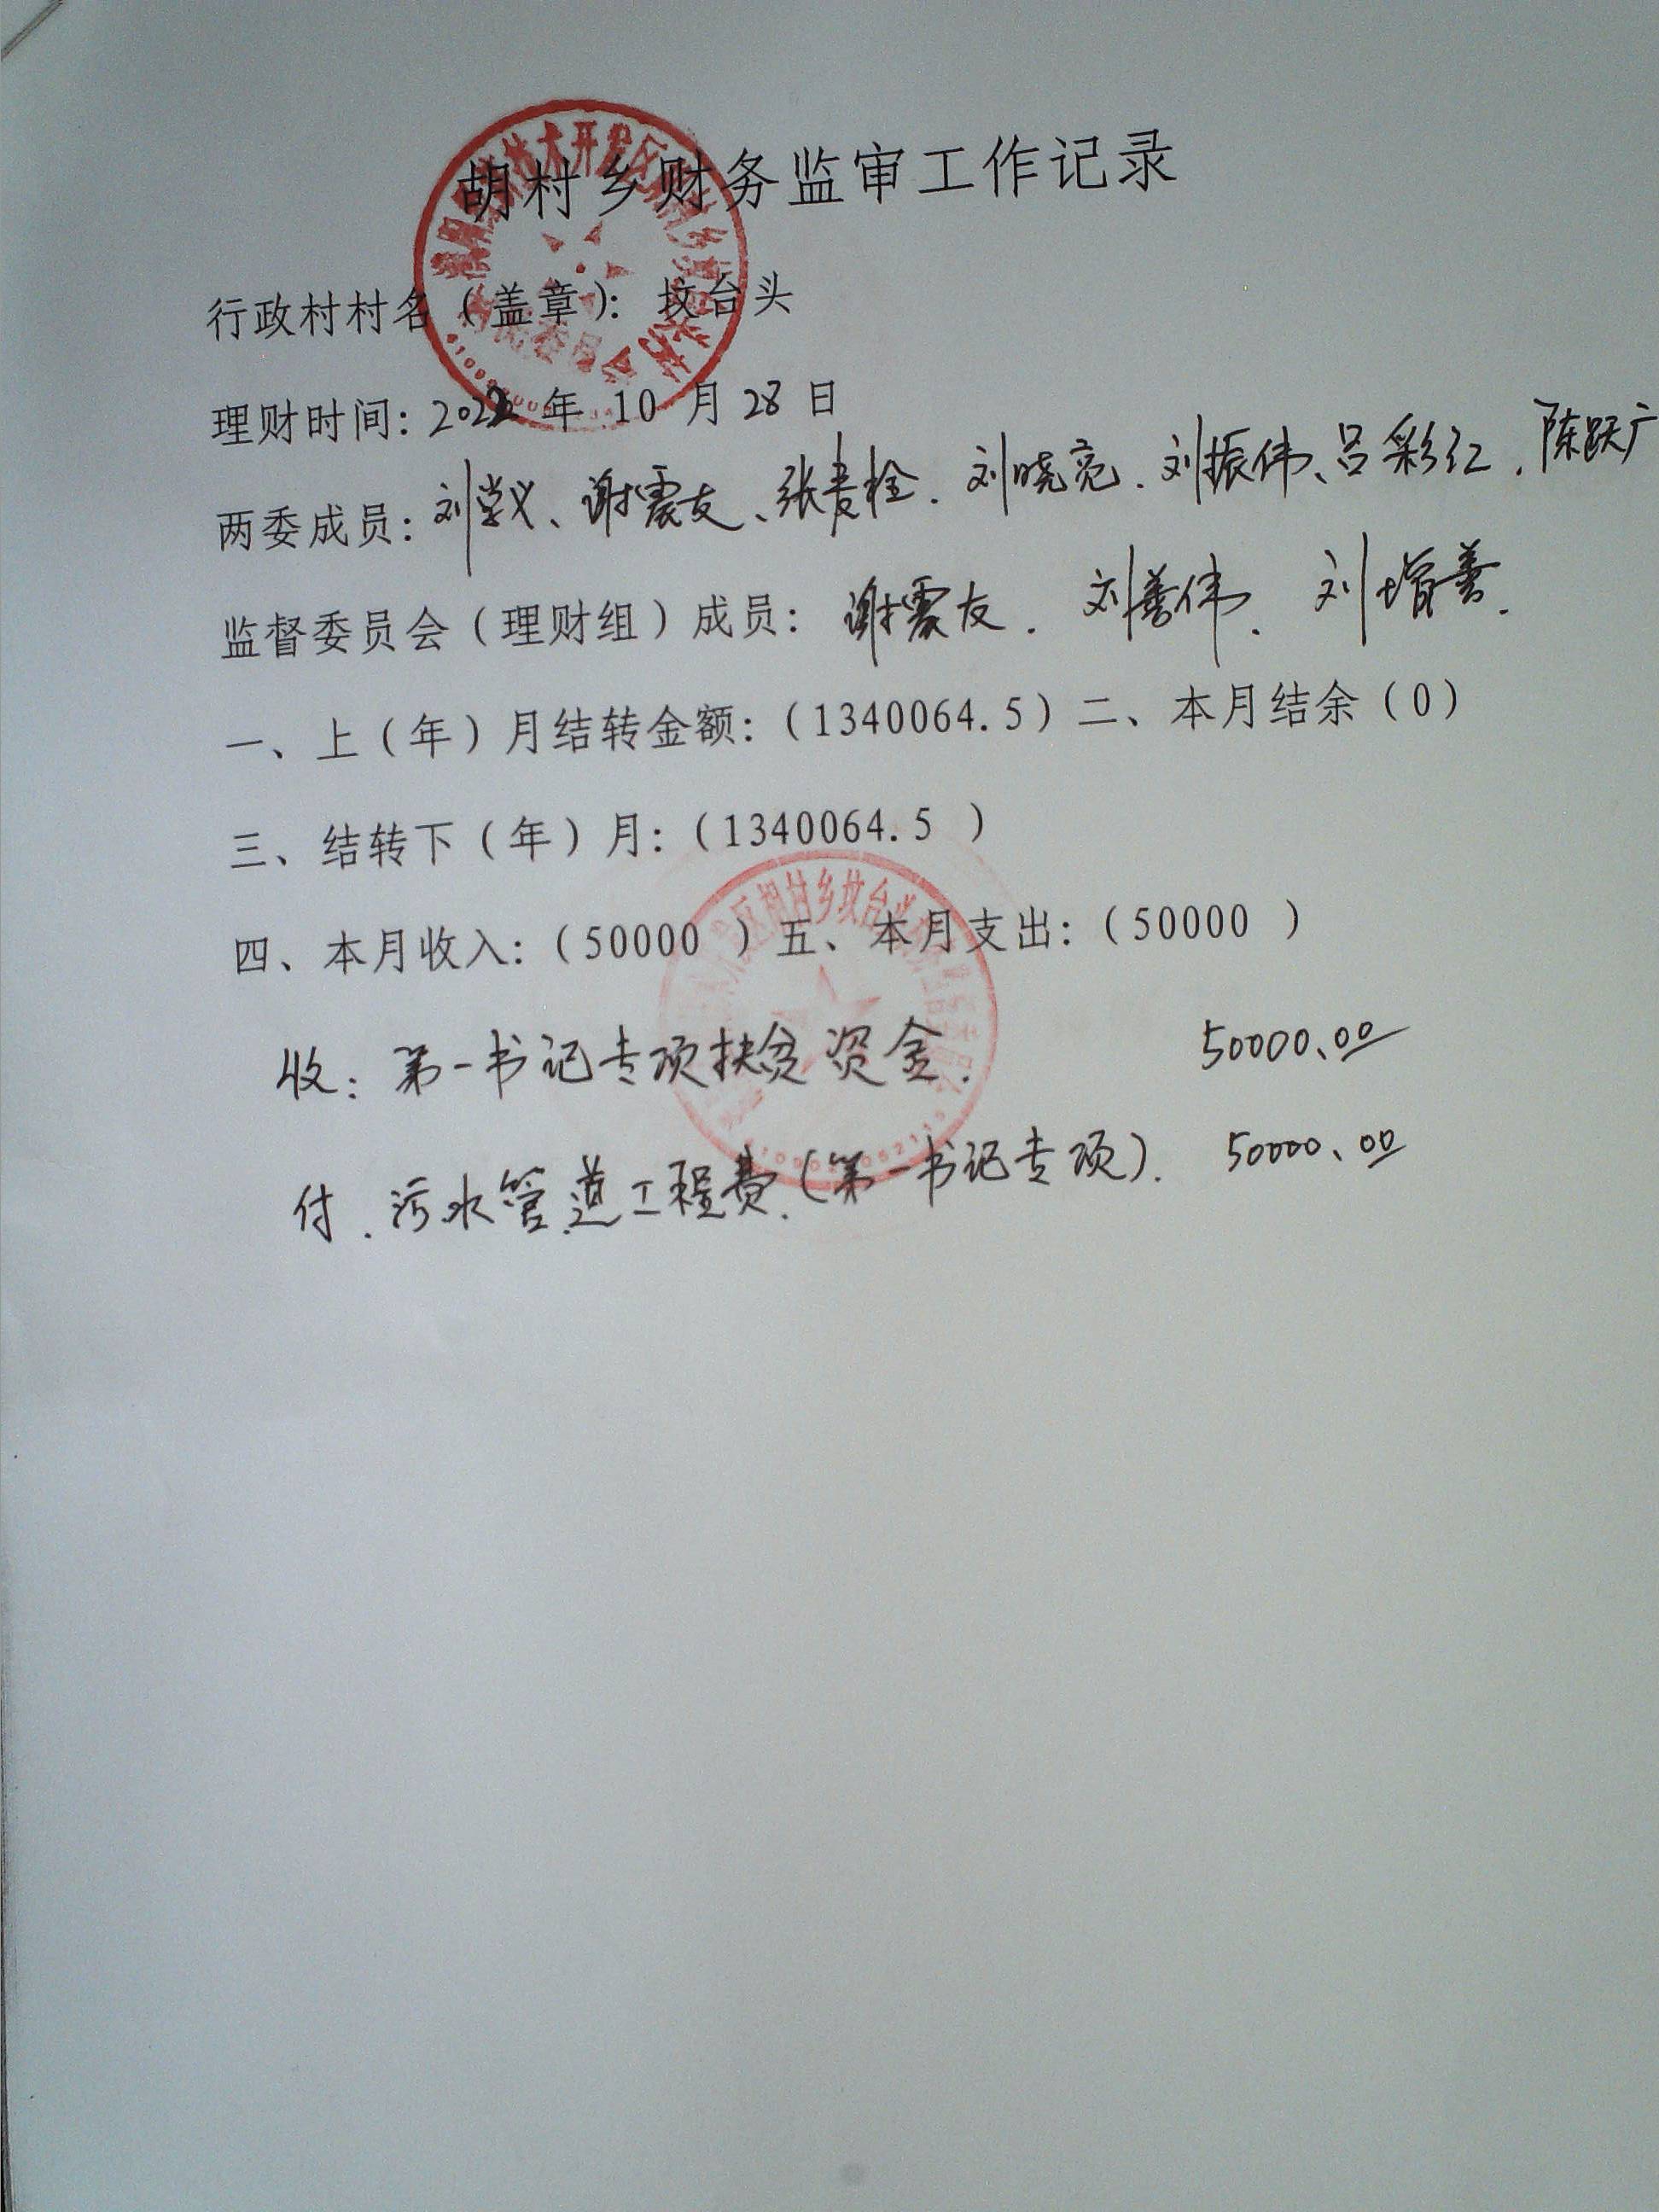 胡村乡财务监审工作记录
行政村村名（盖章）：坟台头
理财时间：2022年 10 月 28 日
两委成员：刘学义、谢震友、张贵栓、刘晓亮、刘振伟、吕彩红、陈跃广
监督委员会（理财组）成员：谢震友、刘善伟、刘增善
一、上（年）月结转金额：（1340064.5）二、本月结余（0）
三、结转下（年）月：（1340064.5 ）
四、本月收入：（50000 ）五、本月支出：（50000 ）
收：第一书记专项扶贫资金. 50000.00
付、污水管道工程费.（第一书记专项）. 50000.00